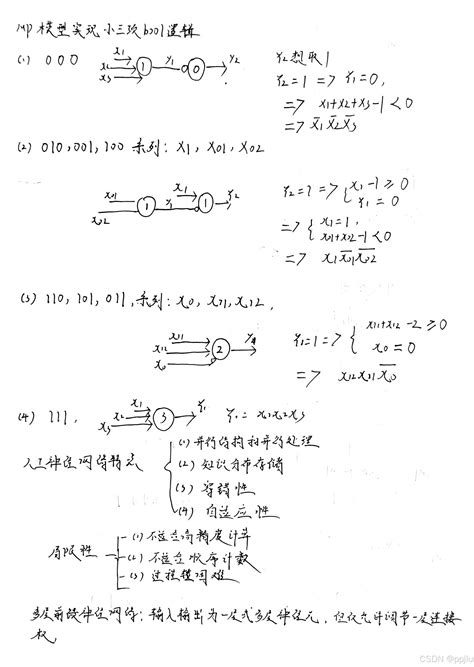 MP模型实现 小三项bool逻辑
(1) 000
x1
x2
x3
1
y1
0
y2
y2想取1
y2=1 => y1=0,
=> x1+x2+x3-1<0
=> x̄1 x̄2 x̄3
(2) 010,001,100 系列: x1, x01, x02
x01
x02
1
y1
x1
1
y2
y2=1 => { x1-1≥0
y1=0
=> { x1=1,
x01+x02-1<0
=> x1 x̄01 x̄02
(3) 110, 101, 011, 系列: x0, x11, x12,
x11
x12
x0
2
y1
y1=1 => { x11+x12-2≥0
x0=0
=> x12 x11 x̄0
(4) 111,
x1
x2
x3
3
y1
y1=x1x2x3
人工神经网络特点
(1) 并行结构和并行处理
(2) 知识分布存储
(3) 容错性
(4) 自适应性
局限性
(1) 不适合高精度计算
(2) 不适合顺序计数
(3) 过程困难
多层前馈神经网络: 输入输出为一层或多层神经元, 但仅允许调节一层连接
权
CSDN @ppjlu